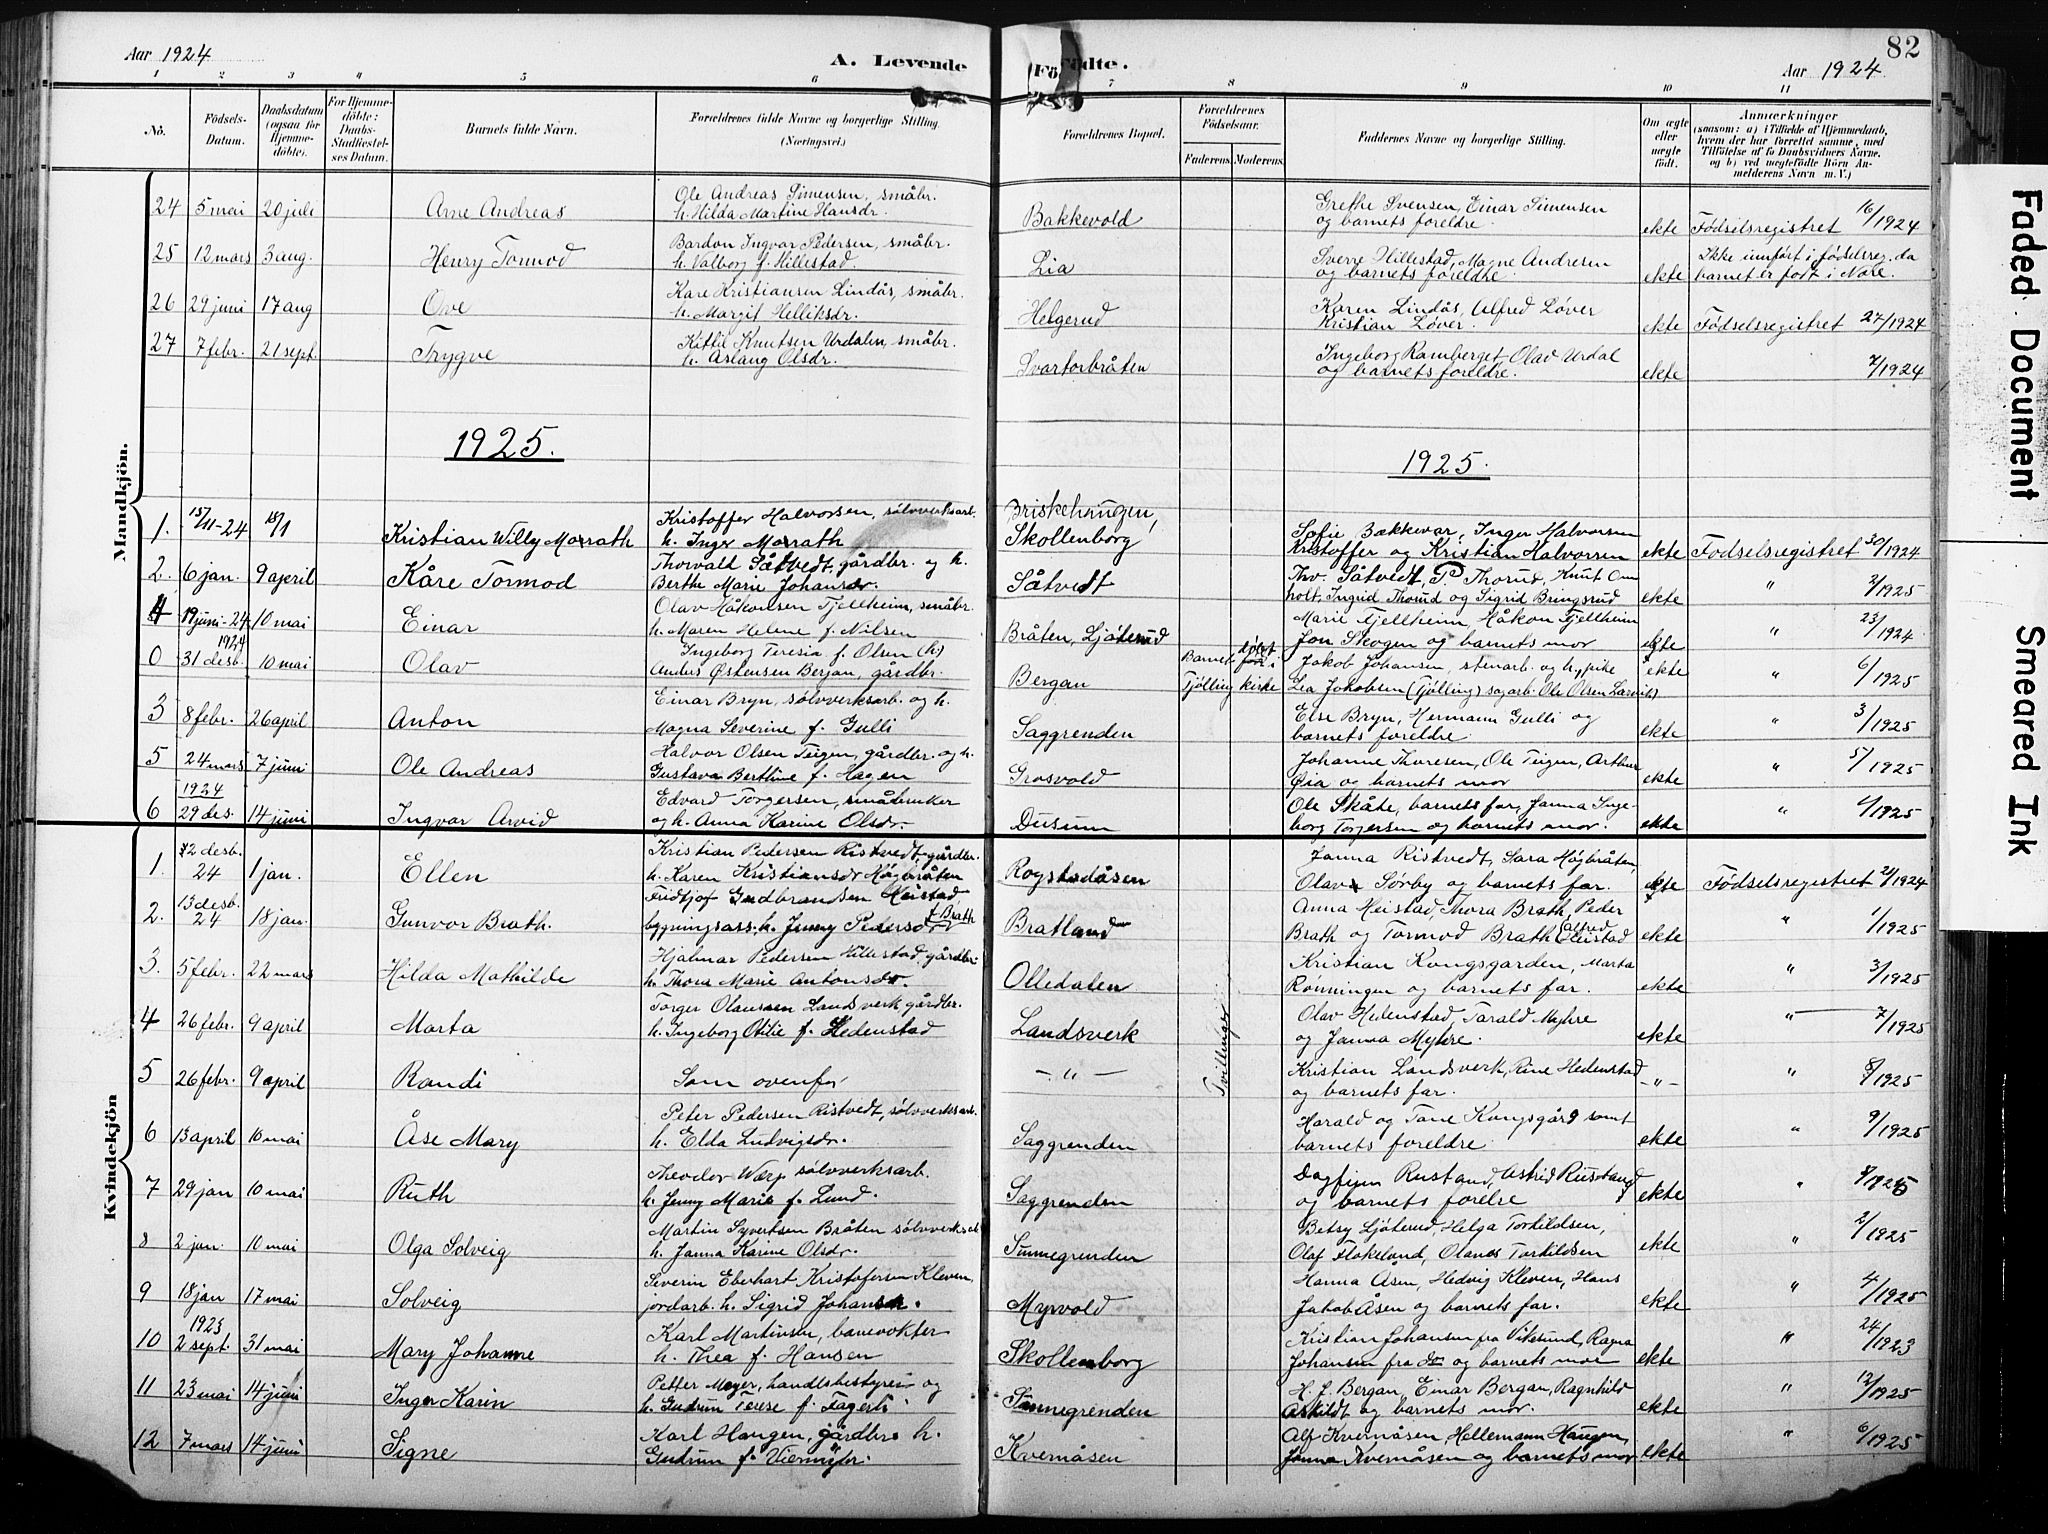 Aar 1924
A. Levende Fødte.
82
Aar 1924
1 2 3 4 5 6 7 8 9 10 11
No.
Fødsels-Datum.
Daabsdatum (ogsaa for Hjemmedøbte).
For Hjemmedøbte: Daabs-Stadfæstelses Datum.
Barnets fulde Navn.
Forældrenes fulde Navne og borgerlige Stilling. (Næringsvei.)
Forældrenes Bopæl.
Forældrenes Fødselsaar.
Faderens. Moderens.
Faddernes Navne og borgerlige Stilling.
Om ægte eller uægte født.
Anmærkninger
(saasom: a) i Tilfælde af Hjemmedaab, hvem der har forrettet samme, med Tilføielse af to Daabsvidners Navne, og b) ved uegtefødte Börn Anmelderens Navn m. V.)
Mandkjön.
24 5 mai 20 juli Arne Andreas Ole Andreas Simensen, småbr. h. Hilda Martine Hansdr. Bakkevold Grethe Svensen, Einar Simensen og barnets foreldre. ekte Fødselsregistret 16/1924
25 12 mars 3 aug. Henry Tormod Bardon Ingvar Pedersen, småbr. h. Valborg f. Hillestad. Lia Sverre Hillestad, Magne Andresen og barnets foreldre. ekte Ikke innført i fødselsreg. da barnet er født i Nore.
26 29 juni 17 aug Ove Kåre Kristiansen Lindås, småbr. h. Margit Helliksdr. Helgerud Karen Lindås, Alfred Løver Kristian Løver. ekte Fødselsregistret 27/1924
27 7 febr. 21 sept. Trygve Kittil Knutsen Urdalen, småbr. h. Aslaug Olsdr. Svartorbråten Ingeborg Ramberget, Olav Urdal og barnets foreldre. ekte 7/1924
1925. 1925.
1. 15/11-24 18/1 Kristian Willy Morrath Kristoffer Halvorsen, sølvverksarb. h. Inger Morrath Briskehaugen, Skollenborg Sofie Bækkevar, Inger Halvorsen Kristoffer og Kristian Halvorsen ekte Fødselsregistret 30/1924
2. 6 jan. 9 april Kåre Tormod Thorvald Såtvedt, gårdbr. og h. Berthe Marie Johansdr. Såtvedt Thv. Såtvedt, P Thorud, Knut Omholt, Ingrid Thorud og Sigrid Bringsrud ekte " 2/1925
4 19 juni-24 10 mai Einar Olav Håkonsen Fjellheim, småbr. h. Maren Helene f. Nilsen Bråten, Ljøterud Marie Fjellheim, Håkon Fjellheim Jon Skogen og barnets mor ekte " 23/1924
0 1924 31 desb. 10 mai Olav Ingeborg Teresia f. Olsen (h) Anders Østensen Bergan, gårdbr. Bergan Barnet døbt i Tjølling kirke Jakob Johansen, stenarb. og h., pike Lea Jakobsen (Tjølling) sagarb. Ole Olsen Larvik) ekte " 6/1925
3 8 febr. 26 april Anton Einar Bryn, sølvverksarb. og h. Magna Severine f. Gulli Saggrenden Else Bryn, Hermann Gulli og barnets foreldre. ekte " 3/1925
5 24 mars 7 juni Ole Andreas Halvor Olsen Teigen, gårdbr. og h. Gustava Bertline f. Hagen Grosvold Johanne Thoresen, Ole Teigen, Arthur Øia og barnets mor ekte " 5/1925
6 1924 29 des. 14 juni Ingvar Arvid Edvard Torgersen, småbruker og h. Anna Karine Olsdr. Dusum Ole Skåte, barnets far, Janna Ingeborg Torgersen og barnets mor. ekte " 1/1925
Kvindekjön
1. 12 desb. 24 1 jan. Ellen Kristian Pedersen Ristvedt, gårdbr. h. Karen Kristiansdr Høgbråten Rogstadåsen Janna Ristvedt, Sara Høgbråten, Olav Sørby og barnets far. ekte Fødselsregistret 21/1924
2. 13 desb. 24 18 jan. Gunvor Brath. Fridtjof Gudbrandsen Heistad, bygningsass. h. Jenny Pedersdr f. Brath Bratland Anna Heistad, Thora Brath, Peder Brath og Tormod Brath, Alfred Heistad ekte " 1/1925
3. 5 febr. 22 mars Hilda Mathilde Hjalmar Pedersen Hillestad, gårdbr. h. Thora Marie Antonsdr. Olledalen Kristian Kongsgarden, Marta Rønningen og barnets far. ekte " 3/1925
4 26 febr. 9 april Marta Torger Olaussen Landsverk gårdbr. h. Ingeborg Otilie f. Hedenstad Landsverk Tvillinger Olav Hedenstad, Tarald Myhre og Janna Myhre. ekte " 7/1925
5 26 febr. 9 april Randi Som ovenfor - " - Kristian Landsverk, Rine Hedenstad og barnets far. -"- " 8/1925
6 13 april 10 mai Åse Mary Peter Pedersen Ristvedt, sølvverksarb. h. Elda Ludvigsdr. Saggrenden Harald og Tane Kongsgård samt barnets foreldre ekte " 9/1925
7 29 jan 10 mai Ruth Theodor Warp sølvverksarb. h. Jenny Marie f. Lund. Saggrenden Dagfinn Rustand, Astrid Rustand og barnets forelse ekte " 8/1925
8 2 jan. 10 mai Olga Solveig Martin Syvertsen Bråten sølvverksarb h. Janna Karine Olsdr. Sunnegrenden Betsy Ljøterud, Helga Torkildsen, Olaf Flakeland, Olanes Torkildsen ekte " 2/1925
9 18 jan 17 mai Solveig Severin Eberhart Kristofersen Kleven, jordarb. h. Sigrid Johansdr. Myrvold Hanna Åsen, Hedvig Kleven, Hans Jakob Åsen og barnets far. ekte " 4/1925
10 1923 2 sept. 31 mai Mary Johanne Karl Martinsen, banevokter h. Thea f. Hansen Skollenborg Kristian Johansen fra Vikesund, Ragna Johansen fra do og barnets mor ekte " 24/1923
11 23 mai 14 juni Inger Karin Petter Meyer, handlsbestyrer og h. Gudrun Terese f. Fagerli Sunnegrenden H. J. Bergan, Einar Bergan, Ragnhild Askildt og barnets mor. ekte " 12/1925
12 7 mars 14 juni Signe Karl Haugen, gårdbr. h. Gudrun f. Viermyr. Kvernåsen Alf Kvernåsen, Hellemann Haugen, Janna Kvernåsen og barnets mor ekte " 6/1925
Faded Document
Smeared Ink